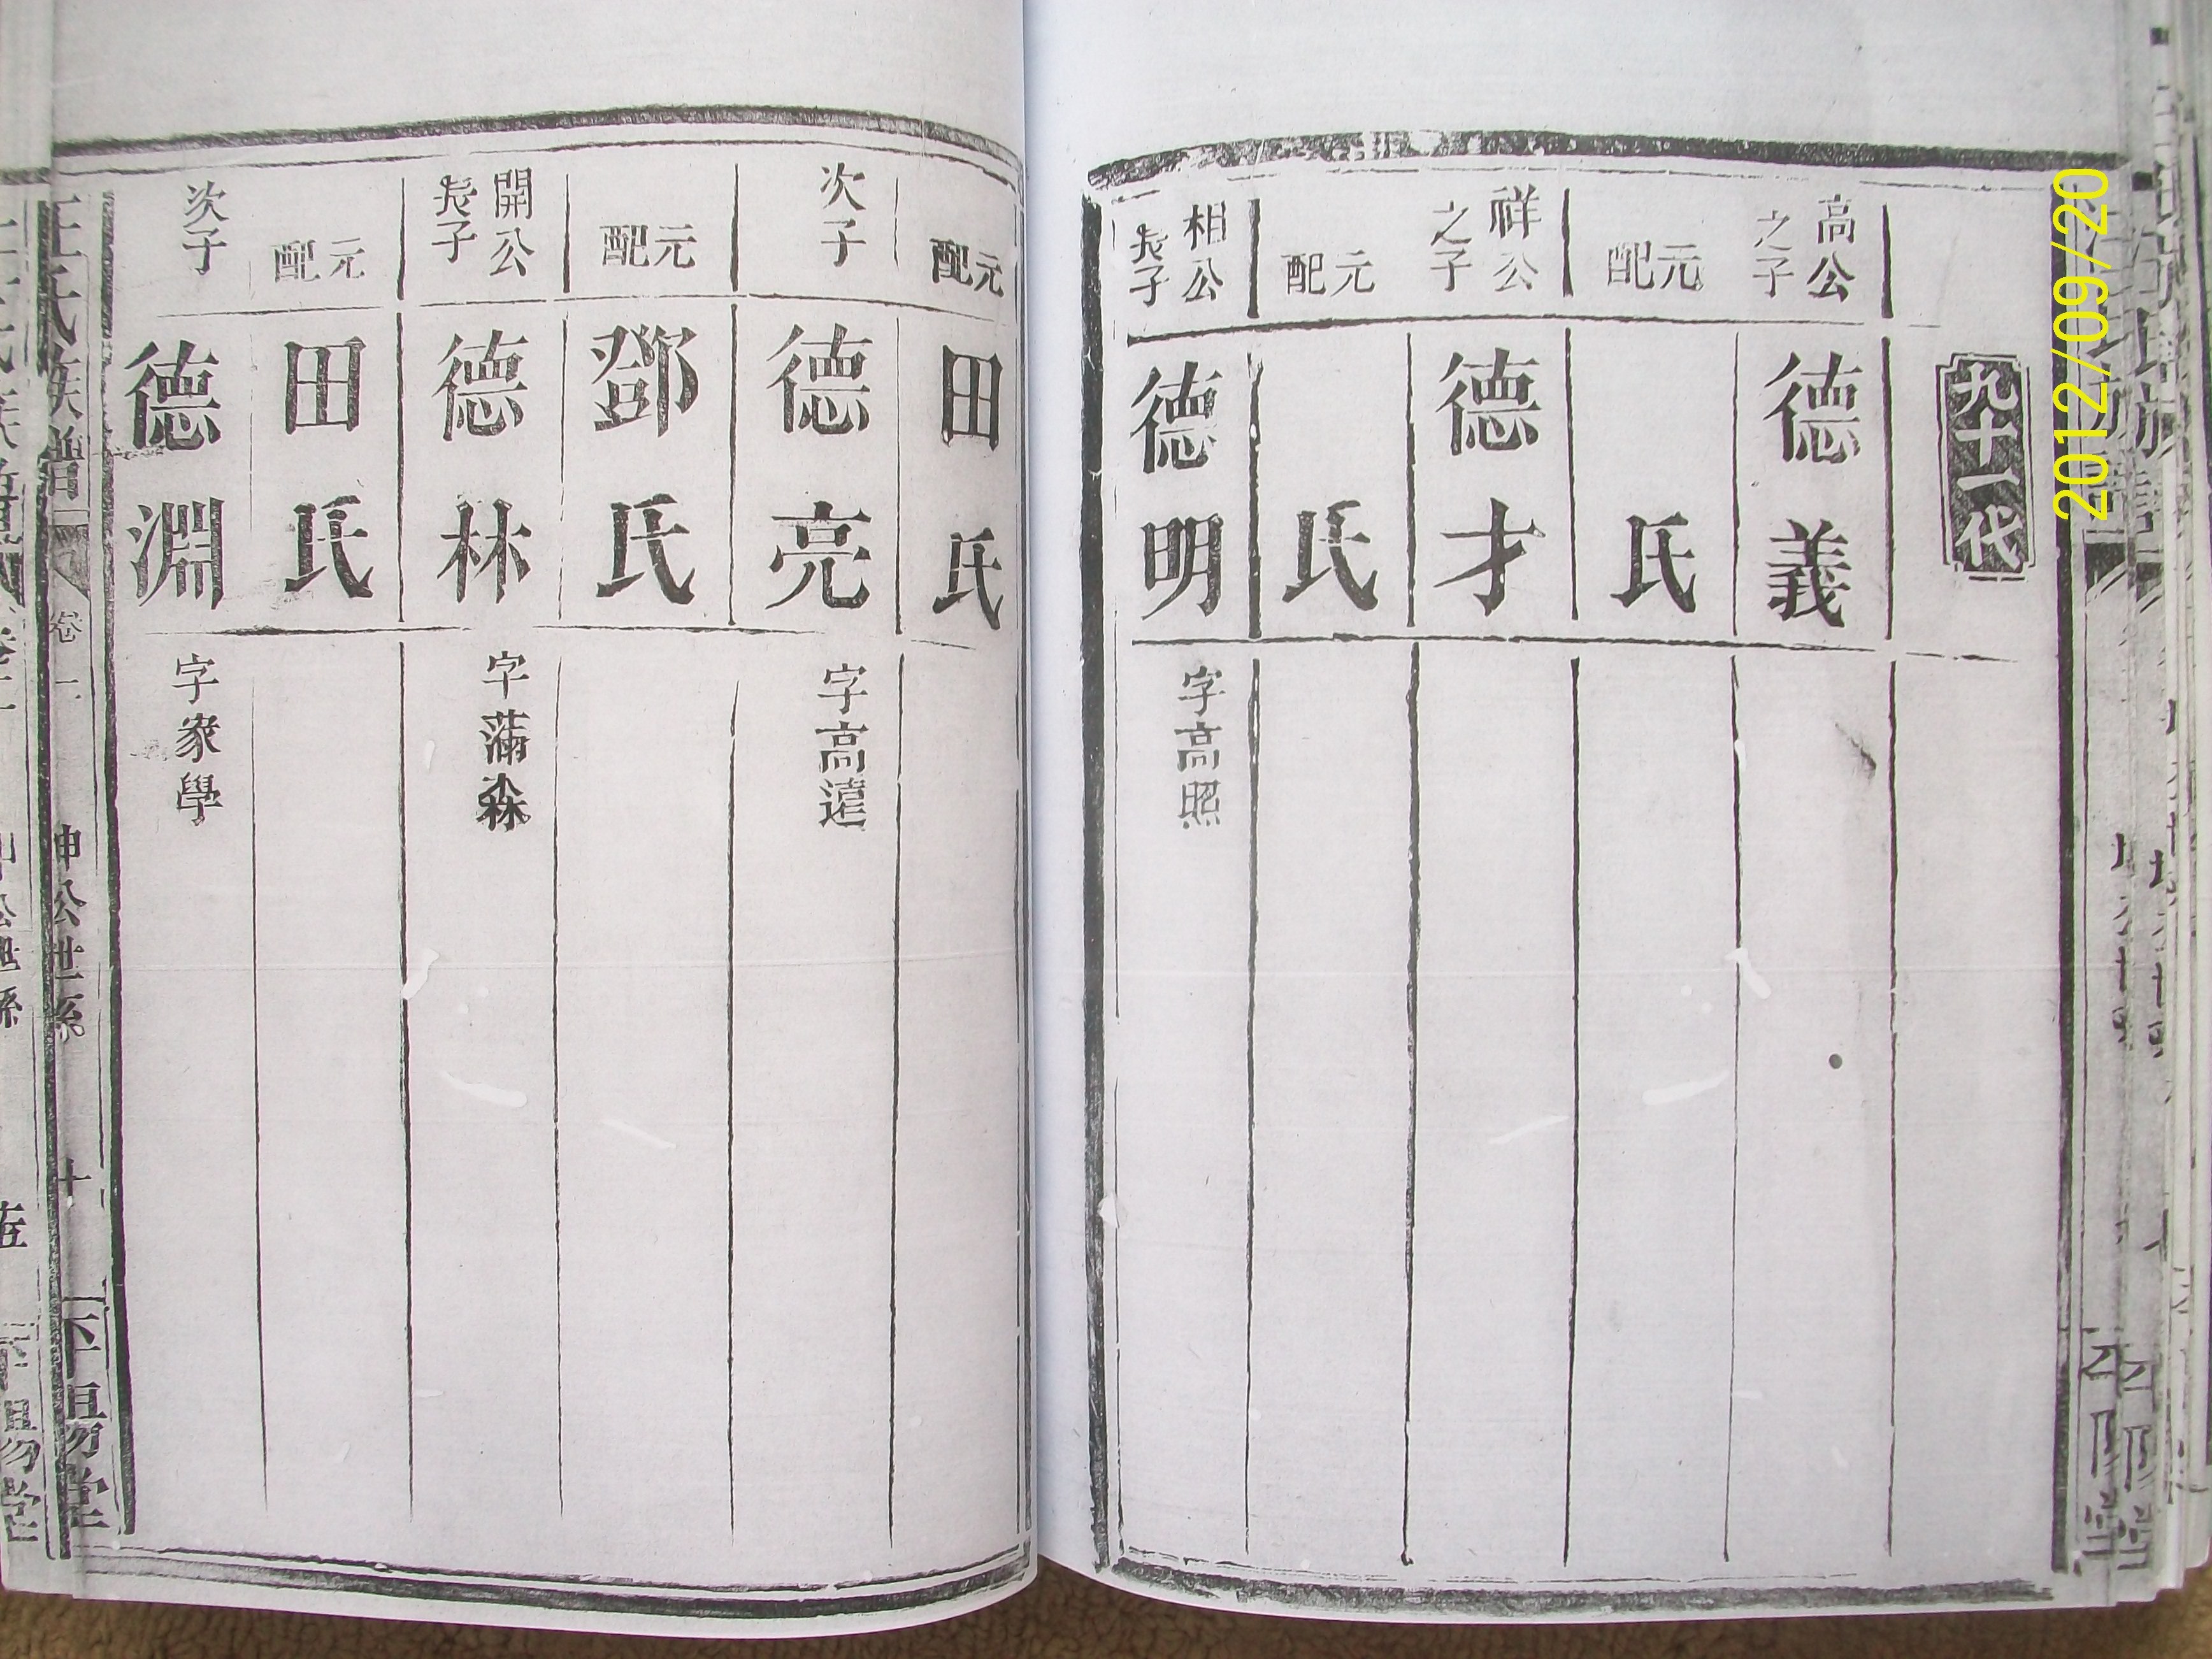 2012/09/20
九十一代
高公
之子
德義
元配
氏
祥公
之子
德才
元配
氏
相公
長子
德明
字高照
元配
田氏
次子
德亮
字高遠
元配
鄧氏
開公
長子
德林
字蒲森
元配
田氏
次子
德淵
字家學
王氏族譜
卷一
坤公世系
十
下陽堂